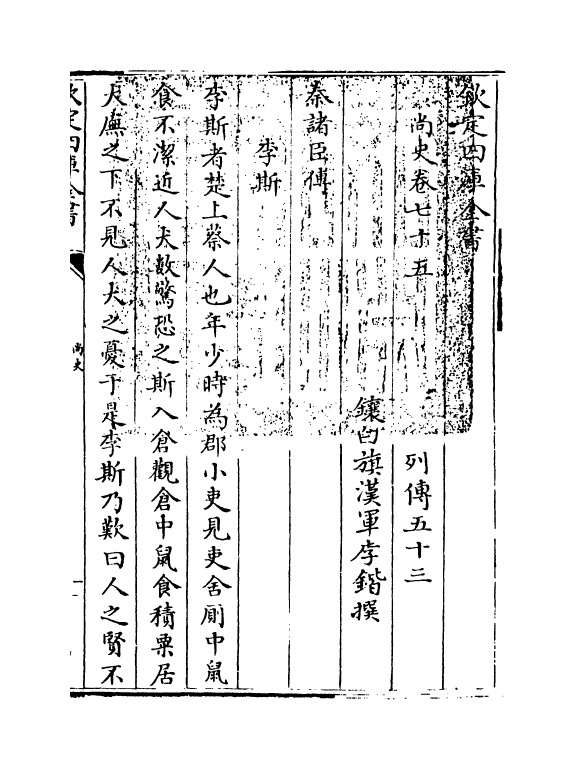 欽定四庫全書
尚史卷七十五　列傳五十三
鑲白旗漢軍李鍇撰
秦諸臣傳
李斯
李斯者楚上蔡人也年少時為郡小吏見吏舍厠中鼠
食不潔近人犬數驚恐之斯入倉觀倉中鼠食積粟居
大廡之下不見人犬之憂于是李斯乃歎曰人之賢不
欽定四庫全書
尚史
一